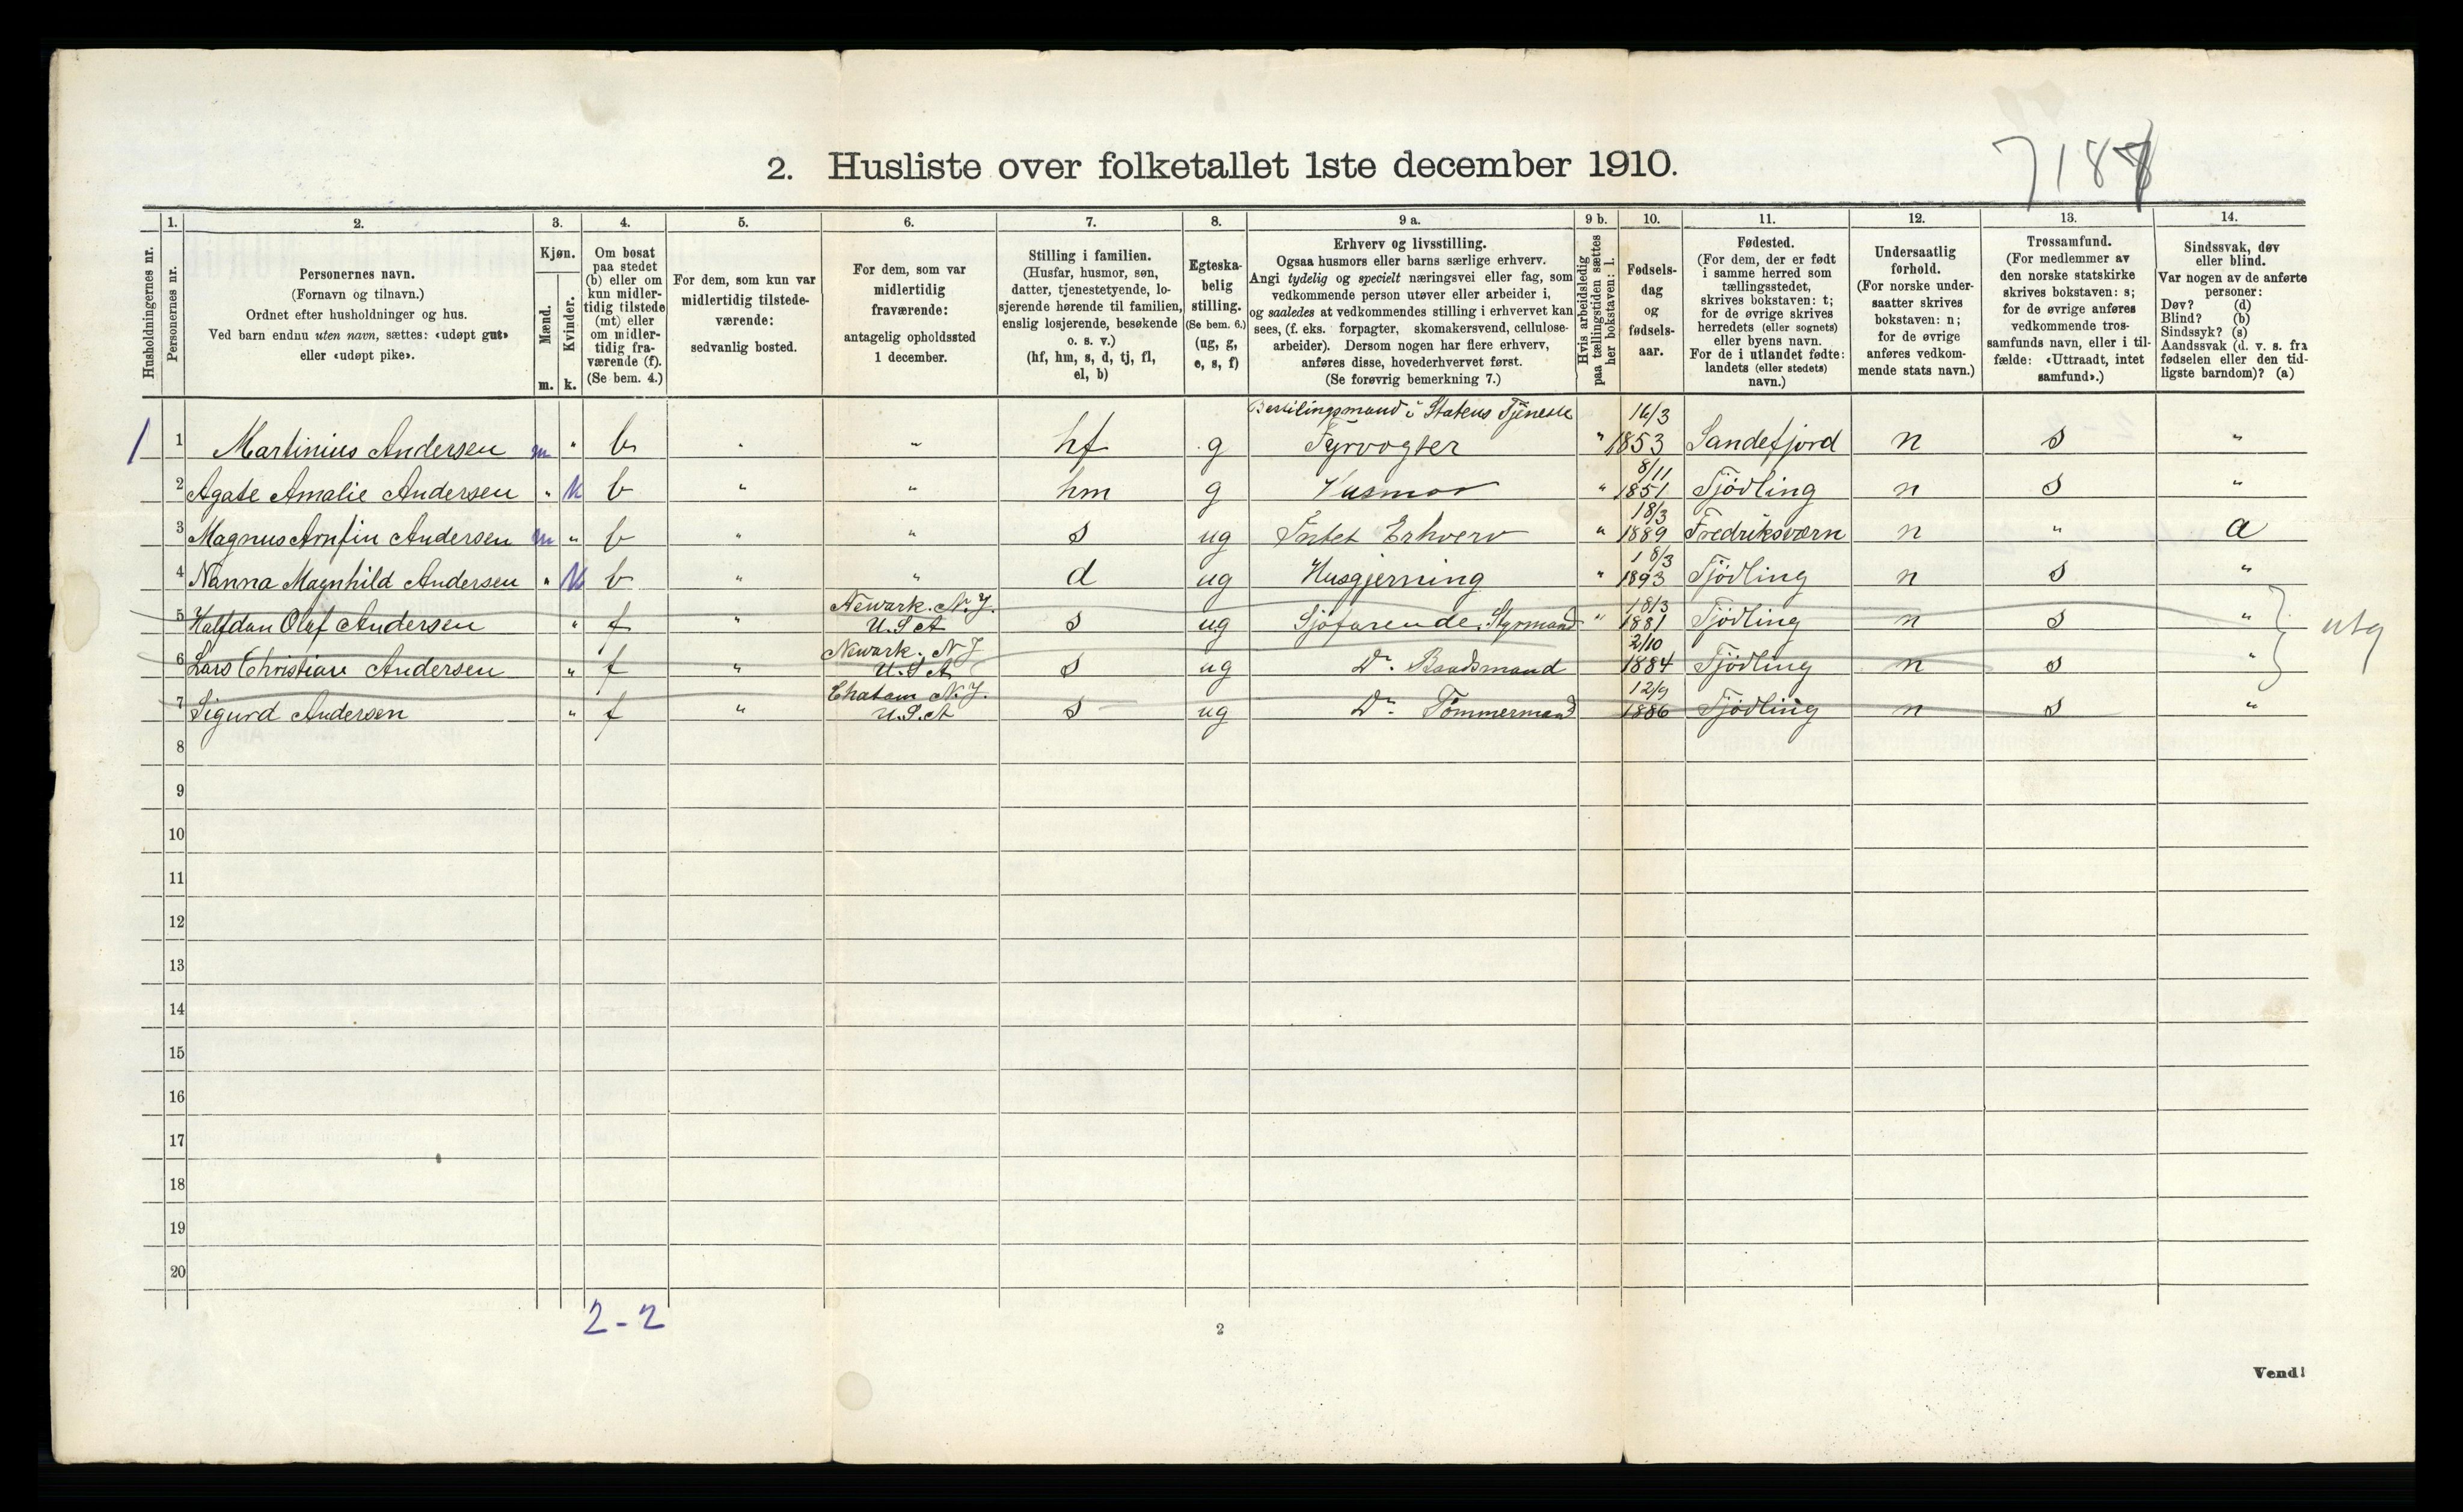 2. Husliste over folketallet 1ste december 1910.
1. 2. 3. 4. 5. 6. 7. 8. 9 a. 9 b. 10. 11. 12. 13. 14.
Husholdningernes nr.
Personernes nr.
Personernes navn.
(Fornavn og tilnavn.)
Ordnet efter husholdninger og hus.
Ved barn endnu uten navn, sættes: «udøpt gut»
eller «udøpt pike».
Kjøn.
Mænd.
Kvinder.
m. k.
Om bosat
paa stedet
(b) eller om
kun midler-
tidig tilstede
(mt) eller
om midler-
tidig fra-
værende (f).
(Se bem. 4.)
For dem, som kun var
midlertidig tilstede-
værende:
sedvanlig bosted.
For dem, som var
midlertidig
fraværende:
antagelig opholdssted
1 december.
Stilling i familien.
(Husfar, husmor, søn,
datter, tjenestetyende, lo-
sjerende hørende til familien,
enslig losjerende, besøkende
o. s. v.)
(hf, hm, s, d, tj, fl,
el, b)
Egteska-
belig
stilling.
(Se bem. 6.)
(ug, g,
e, s, f)
Erhverv og livsstilling.
Ogsaa husmors eller barns særlige erhverv.
Angi tydelig og specielt næringsvei eller fag, som
vedkommende person utøver eller arbeider i,
og saaledes at vedkommendes stilling i erhvervet kan
sees, (f. eks. forpagter, skomakersvend, cellulose-
arbeider). Dersom nogen har flere erhverv,
anføres disse, hovederhvervet først.
(Se forøvrig bemerkning 7.)
Hvis arbeidsledig
paa tællingstiden sættes
her bokstaven: l.
Fødsels-
dag
og
fødsels-
aar.
Fødested.
(For dem, der er født
i samme herred som
tællingsstedet,
skrives bokstaven: t;
for de øvrige skrives
herredets (eller sognets)
eller byens navn.
For de i utlandet fødte:
landets (eller stedets)
navn.)
Undersaatlig
forhold.
(For norske under-
saatter skrives
bokstaven: n;
for de øvrige
anføres vedkom-
mende stats navn.)
Trossamfund.
(For medlemmer av
den norske statskirke
skrives bokstaven: s;
for de øvrige anføres
vedkommende tros-
samfunds navn, eller i til-
fælde: «Uttraadt, intet
samfund».)
Sindssvak, døv
eller blind.
Var nogen av de anførte
personer:
Døv? (d)
Blind? (b)
Sindssyk? (s)
Aandssvak (d. v. s. fra
fødselen eller den tid-
ligste barndom)? (a)
Bestilingsmand i Statens Tjeneste 16/3
1 1 Martinius Andersen m " b " " hf g Fyrvogter " 1853 Sandefjord n s "
8/11
2 Agate Amalie Andersen " k b " " hm g Husmor " 1851 Tjödling n s "
18/3
3 Magnus Arnfin Andersen m " b " " s ug Intet Erhverv " 1889 Fredriksværn n " a
18/3
4 Nanna Magnhild Andersen " k b " " d ug Husgjerning " 1893 Tjödling n s "
Newark. N. J. 18/3
5 Halfdan Olaf Andersen " f " U.S.A s ug Sjöfarende, Styrmand " 1881 Tjödling n s " utg
Newark. N J 2/10
6 Lars Christian Andersen " f " U.S A s ug Do. Baadsmand 1884 Tjödling n s "
Chatam N. J. 12/9
7 Sigurd Andersen " f " U.S.A s ug Do. Tömmermand 1886 Tjödling n s "
8
9
10
11
12
13
14
15
16
17
18
19
20
2-2
2
Vend!